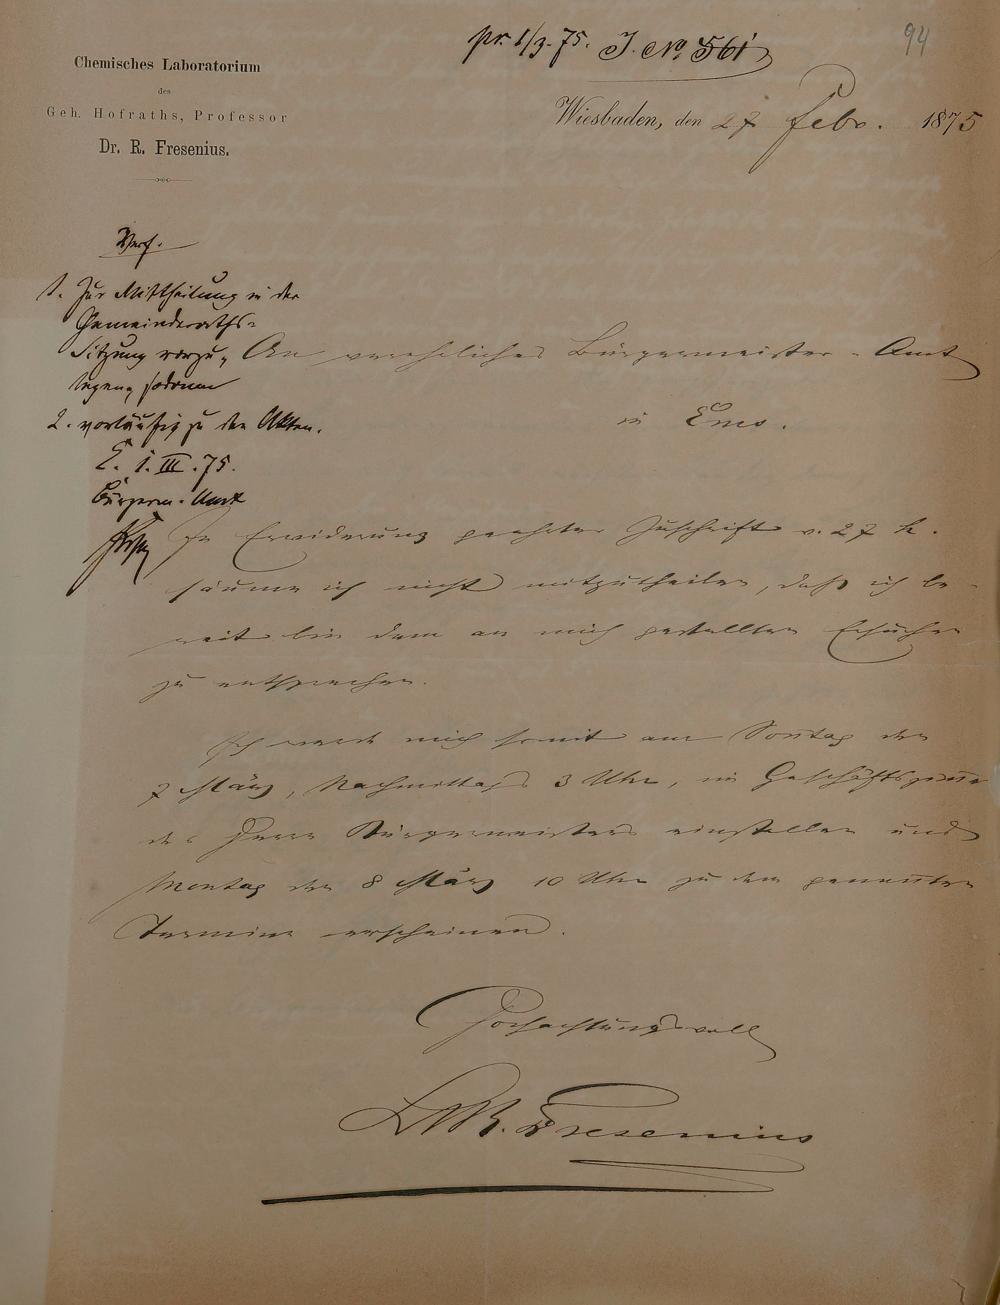 94
pr. 1/3. 75. J. No. 561
Chemisches Laboratorium
des
Geh. Hofraths, Professor
Dr. R. Fresenius.
Wiesbaden, den 27 Febr. 1875
Verf.
1. Zur Mittheilung in der
Gemeinderaths-
Sitzung vorzu-
legen, sodann
2. vorläufig zu den Akten.
E. 1. III. 75.
Bürgerm. Amt
An verehrliches Bürgermeister-Amt
in Ems.
In Erwiderung geehrter Zuschrift v. 27 h.
säume ich nicht mitzutheilen, daß ich be-
reit bin dem an mich gestellten Ersuchen
zu entsprechen.
Ich werde mich somit am Sontag den
7 März, Nachmittags 3 Uhr, im
des Herrn Bürgermeisters einstellen und
Montag den 8 März 10 Uhr zu dem genannten
Termine erscheinen.
Hochachtungsvoll
Dr R. Fresenius